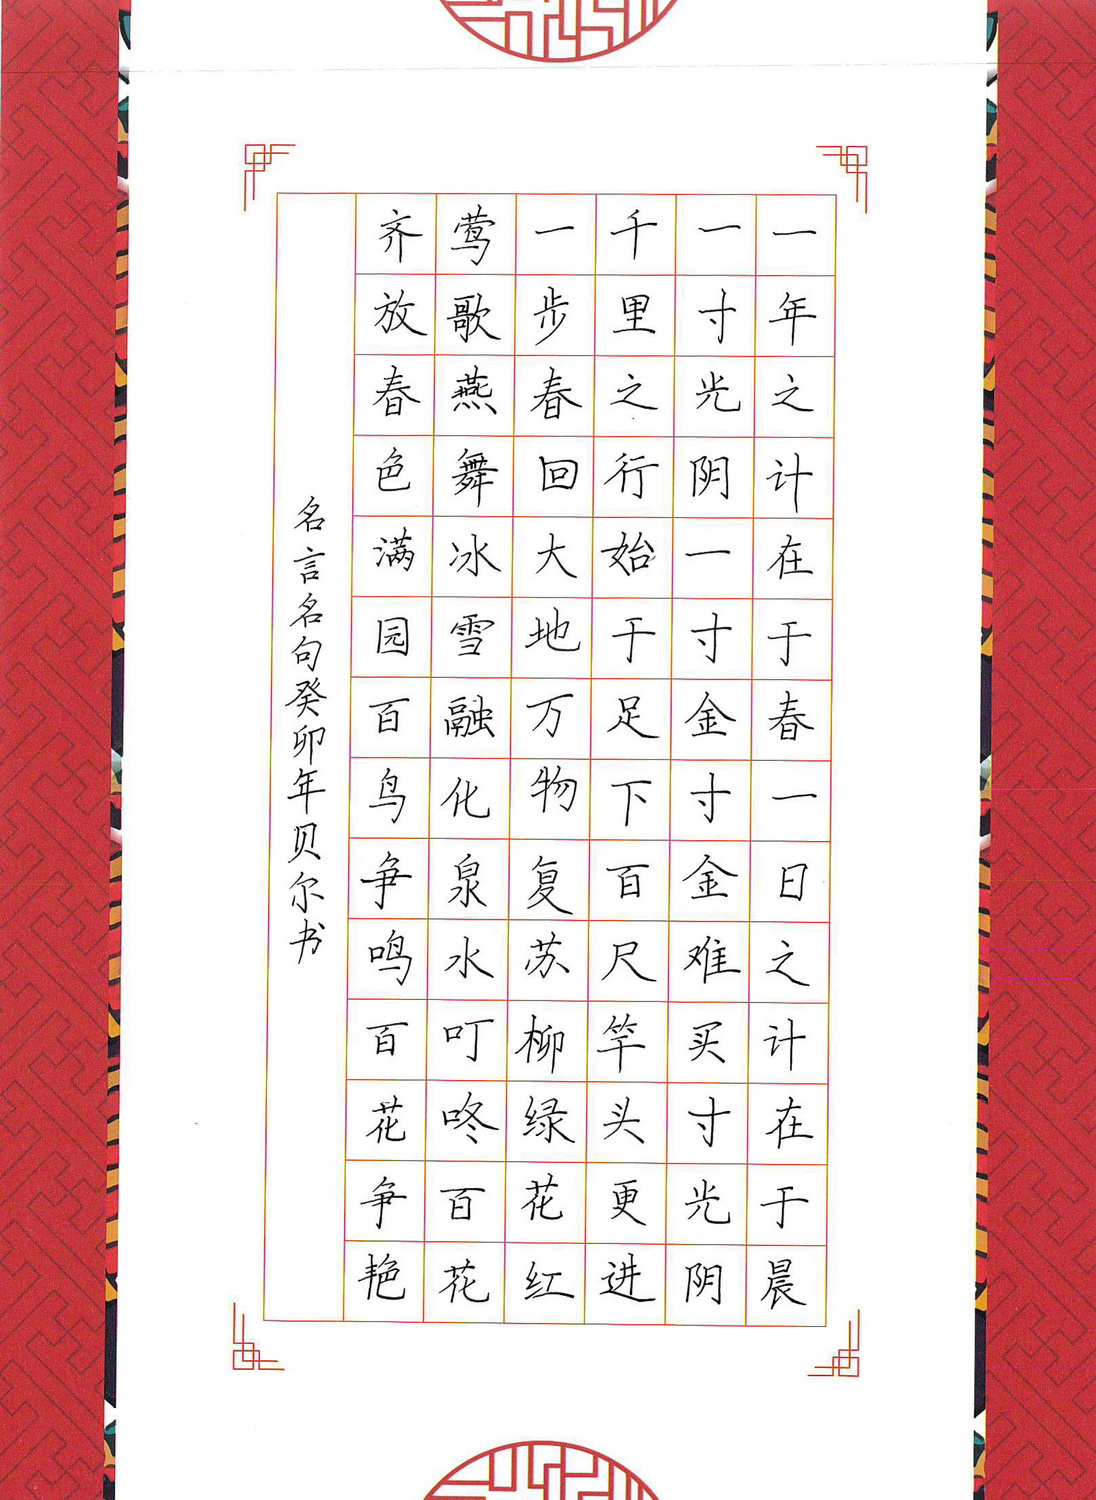 一年之计在于春一日之计在于晨
一寸光阴一寸金寸金难买寸光阴
千里之行始于足下百尺竿头更进
一步春回大地万物复苏柳绿花红
莺歌燕舞冰雪融化泉水叮咚百花
齐放春色满园百鸟争鸣百花争艳
名言名句癸卯年贝尔书